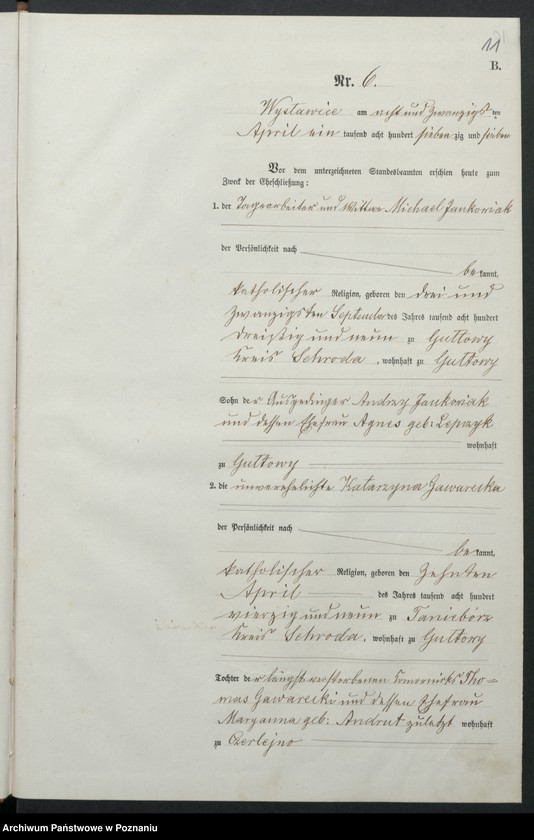 11
B.
Nr. 6.
Wyslawice am acht und zwanzigsten
April ein tausend acht hundert siebenzig und sieben
Vor dem unterzeichneten Standesbeamten erschien heute zum
Zweck der Eheschließung:
1. der Tagearbeiter und Wittwe Michael Jankowiak
der Persönlichkeit nach
bekannt,
katholischer Religion, geboren den drei und
zwanzigsten September des Jahres tausend acht hundert
dreißig und neun zu Gultowy
Kreis Schroda, wohnhaft zu Gultowy
Sohn der Ausgedinger Andrzy Jankowiak
und dessen Ehefrau Agnes geb:
wohnhaft
zu Gultowy
2. die unverehelichte Katarzyna Gawarecka
der Persönlichkeit nach
bekannt,
katholischer Religion, geboren den zehnten
April des Jahres tausend acht hundert
vierzig und neun zu Taniborz
Kreis Schroda, wohnhaft zu Gultowy
Tochter der längst verstorbenen Komorniks Tho=
mas Gawarecki und dessen Ehefrau
Maryanna geb: Andrut zuletzt wohnhaft
zu Czerlejno
Archiwum Państwowe w Poznaniu